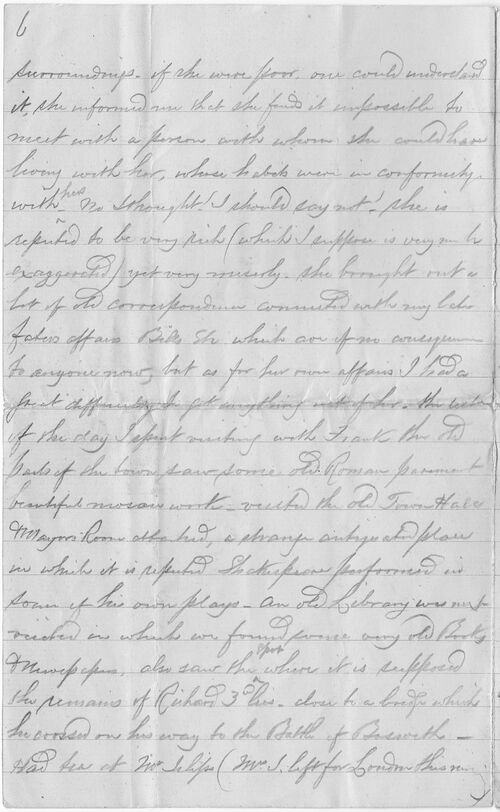 6
surroundings - if she were poor, one could understand
it, she informed me that she finds it impossible to
meet with a person with whom she could have
living with her, whose habits were in conformity
with hers No I thought! I should say not! she is
reputed to be very rich (which I suppose is very much
exaggerated) yet very miserly - she brought out a
lot of old correspondence connected with my late
Fathers affairs Bills &c which are of no consequence
to anyone now, but as for her own affairs I had a
great difficulty to get anything out of her - the
of the day I spent visiting with Frank the old
parts of the town, saw some old Roman pavement
beautiful mosaic work - visited the old Town Hall
& Mayors Room attached, a strange antiquated place
in which it is reputed Shakespeare performed in
some of his own plays - An old Library was next
visited in which we found some very old Books
& Newspapers, also saw the spot where it is supposed
the remains of Richard 3rd lies - close to a bridge which
he crossed on his way to the Battle of Bosworth -
Had tea at Mr Islips (Mrs I. left for London this